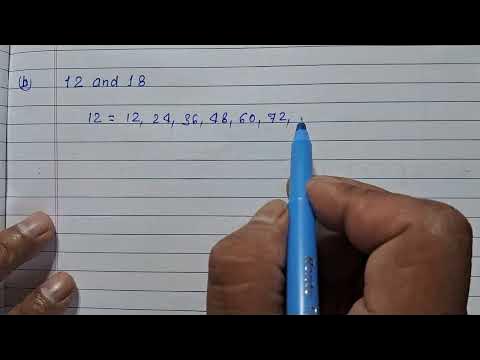 (b) 12 and 18
12 = 12, 24, 36, 48, 60, 72,